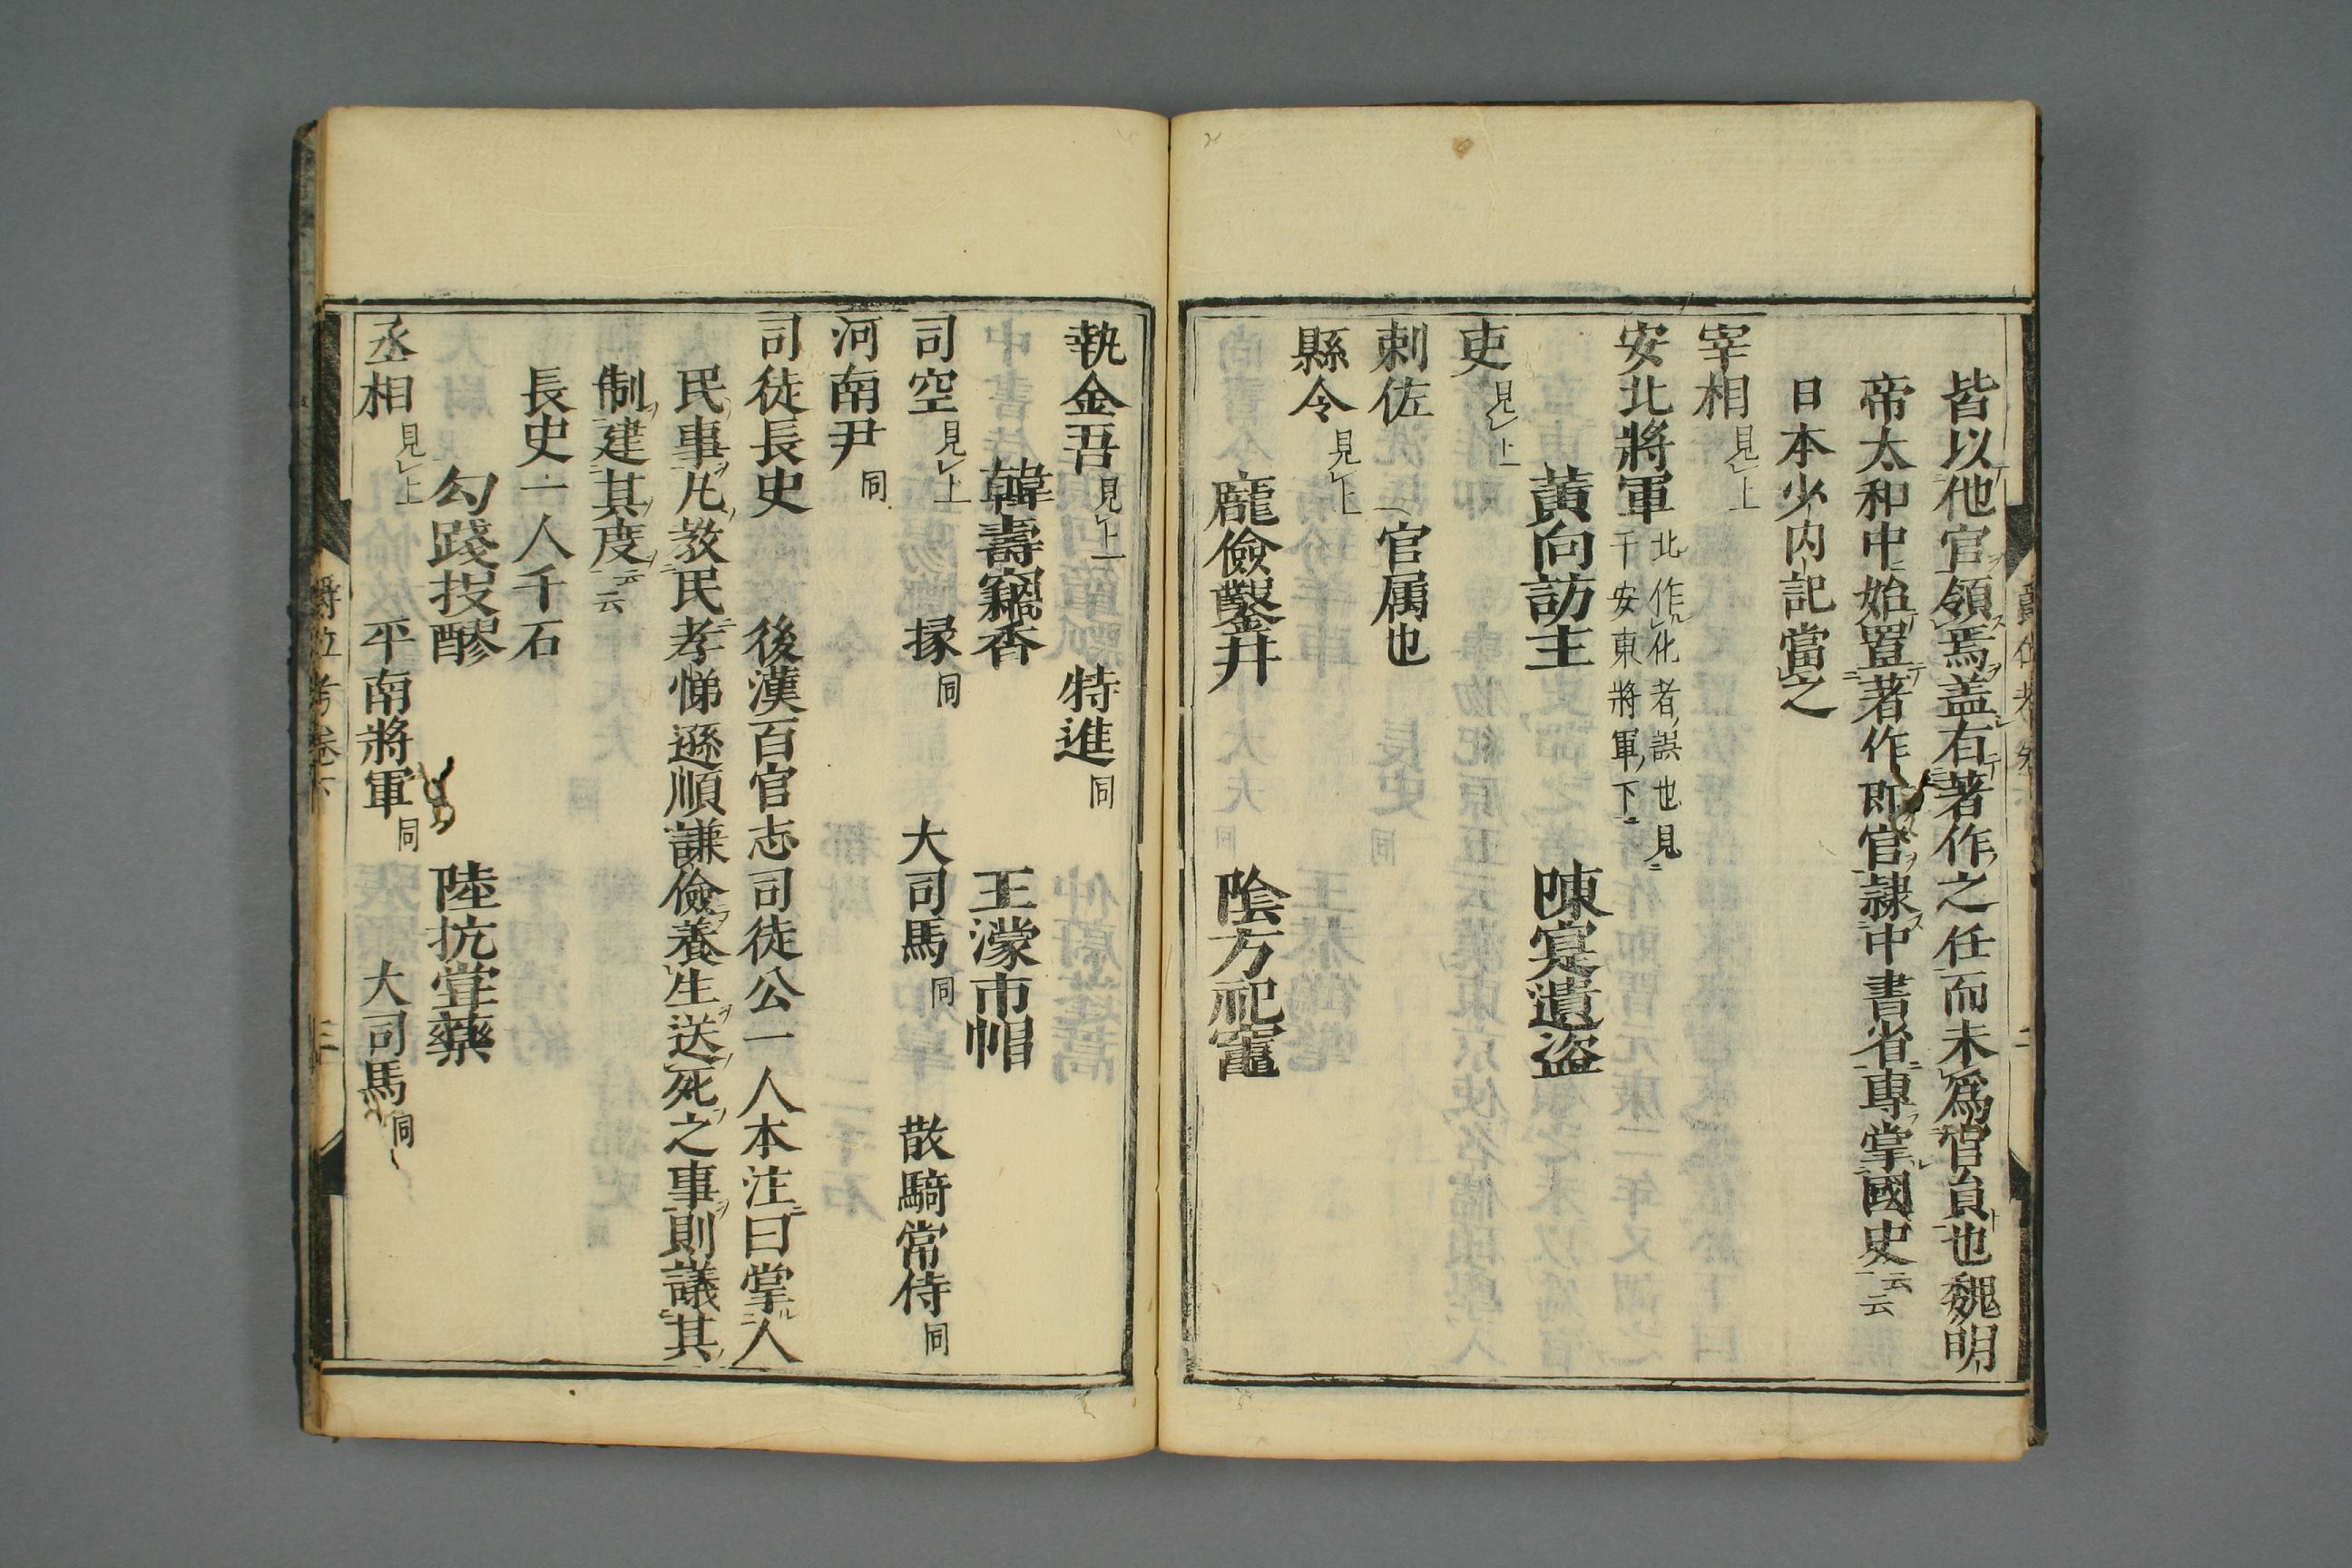 皆以他官領焉盖右著作之任而未爲官員也魏明
帝太和中始置著作郎官隷中書省専掌國史云云
日本少内記當之
宰相見上
安北將軍北作化者誤也見
于安東將軍下
黄向訪主 陳寔遺盗
吏見上
刺佐 官属也
縣令見上
龐儉鑿井 陰方祀竈
執金吾見上 特進同
韓壽竊香 王濛市帽
司空見上 掾同 大司馬同 散騎常侍同
河南尹同
司徒長史 後漢百官志司徒公一人本注曰掌人
民事凡教民孝悌遜順謙儉養生送死之事則議其
制建其度云云
長史一人千石
勾踐投醪 陸抗甞藥
丞相見上 平南將軍同 大司馬同
爵位考卷下 三